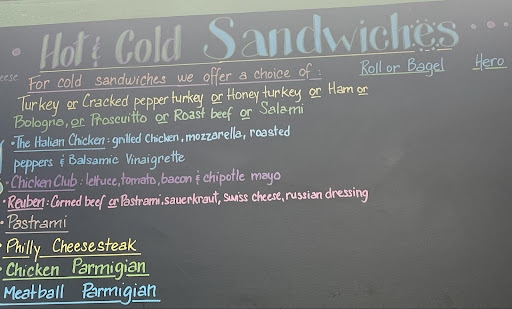 Hot & Cold Sandwiches
For cold sandwiches we offer a choice of : Roll or Bagel Hero
Turkey or Cracked pepper turkey or Honey turkey or Ham or
Bologna, or Proscuitto or Roast beef or Salami
• The Italian Chicken : grilled Chicken, mozzarella, roasted
peppers & Balsamic Vinaigrette
• Chicken Club : lettuce, tomato, bacon & chipotle mayo
• Reuben : Corned beef or Pastrami, sauerkraut, swiss cheese, russian dressing
• Pastrami
• Philly Cheesesteak
• Chicken Parmigian
Meatball Parmigian